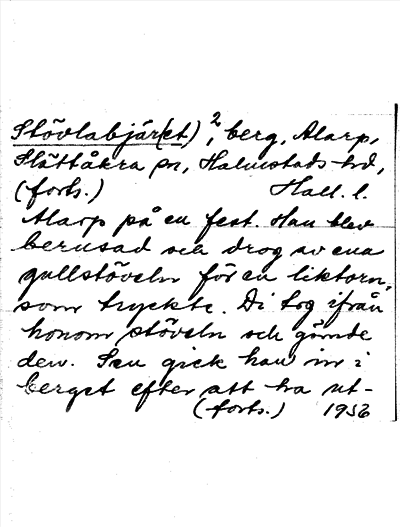 Stövlabjär(et)², berg, Alarp,
Slättåkra sn, Halmstads hd,
(forts.) Hall. l.
Alarp på en fest. Han blev
berusad och drog av ena
gullstöveln för en liktorn,
som tryckte. Di tog ifrån
honom stöveln och gömde
den. Sen gick han in i
berget efter att ha ut-
(forts.) 1956